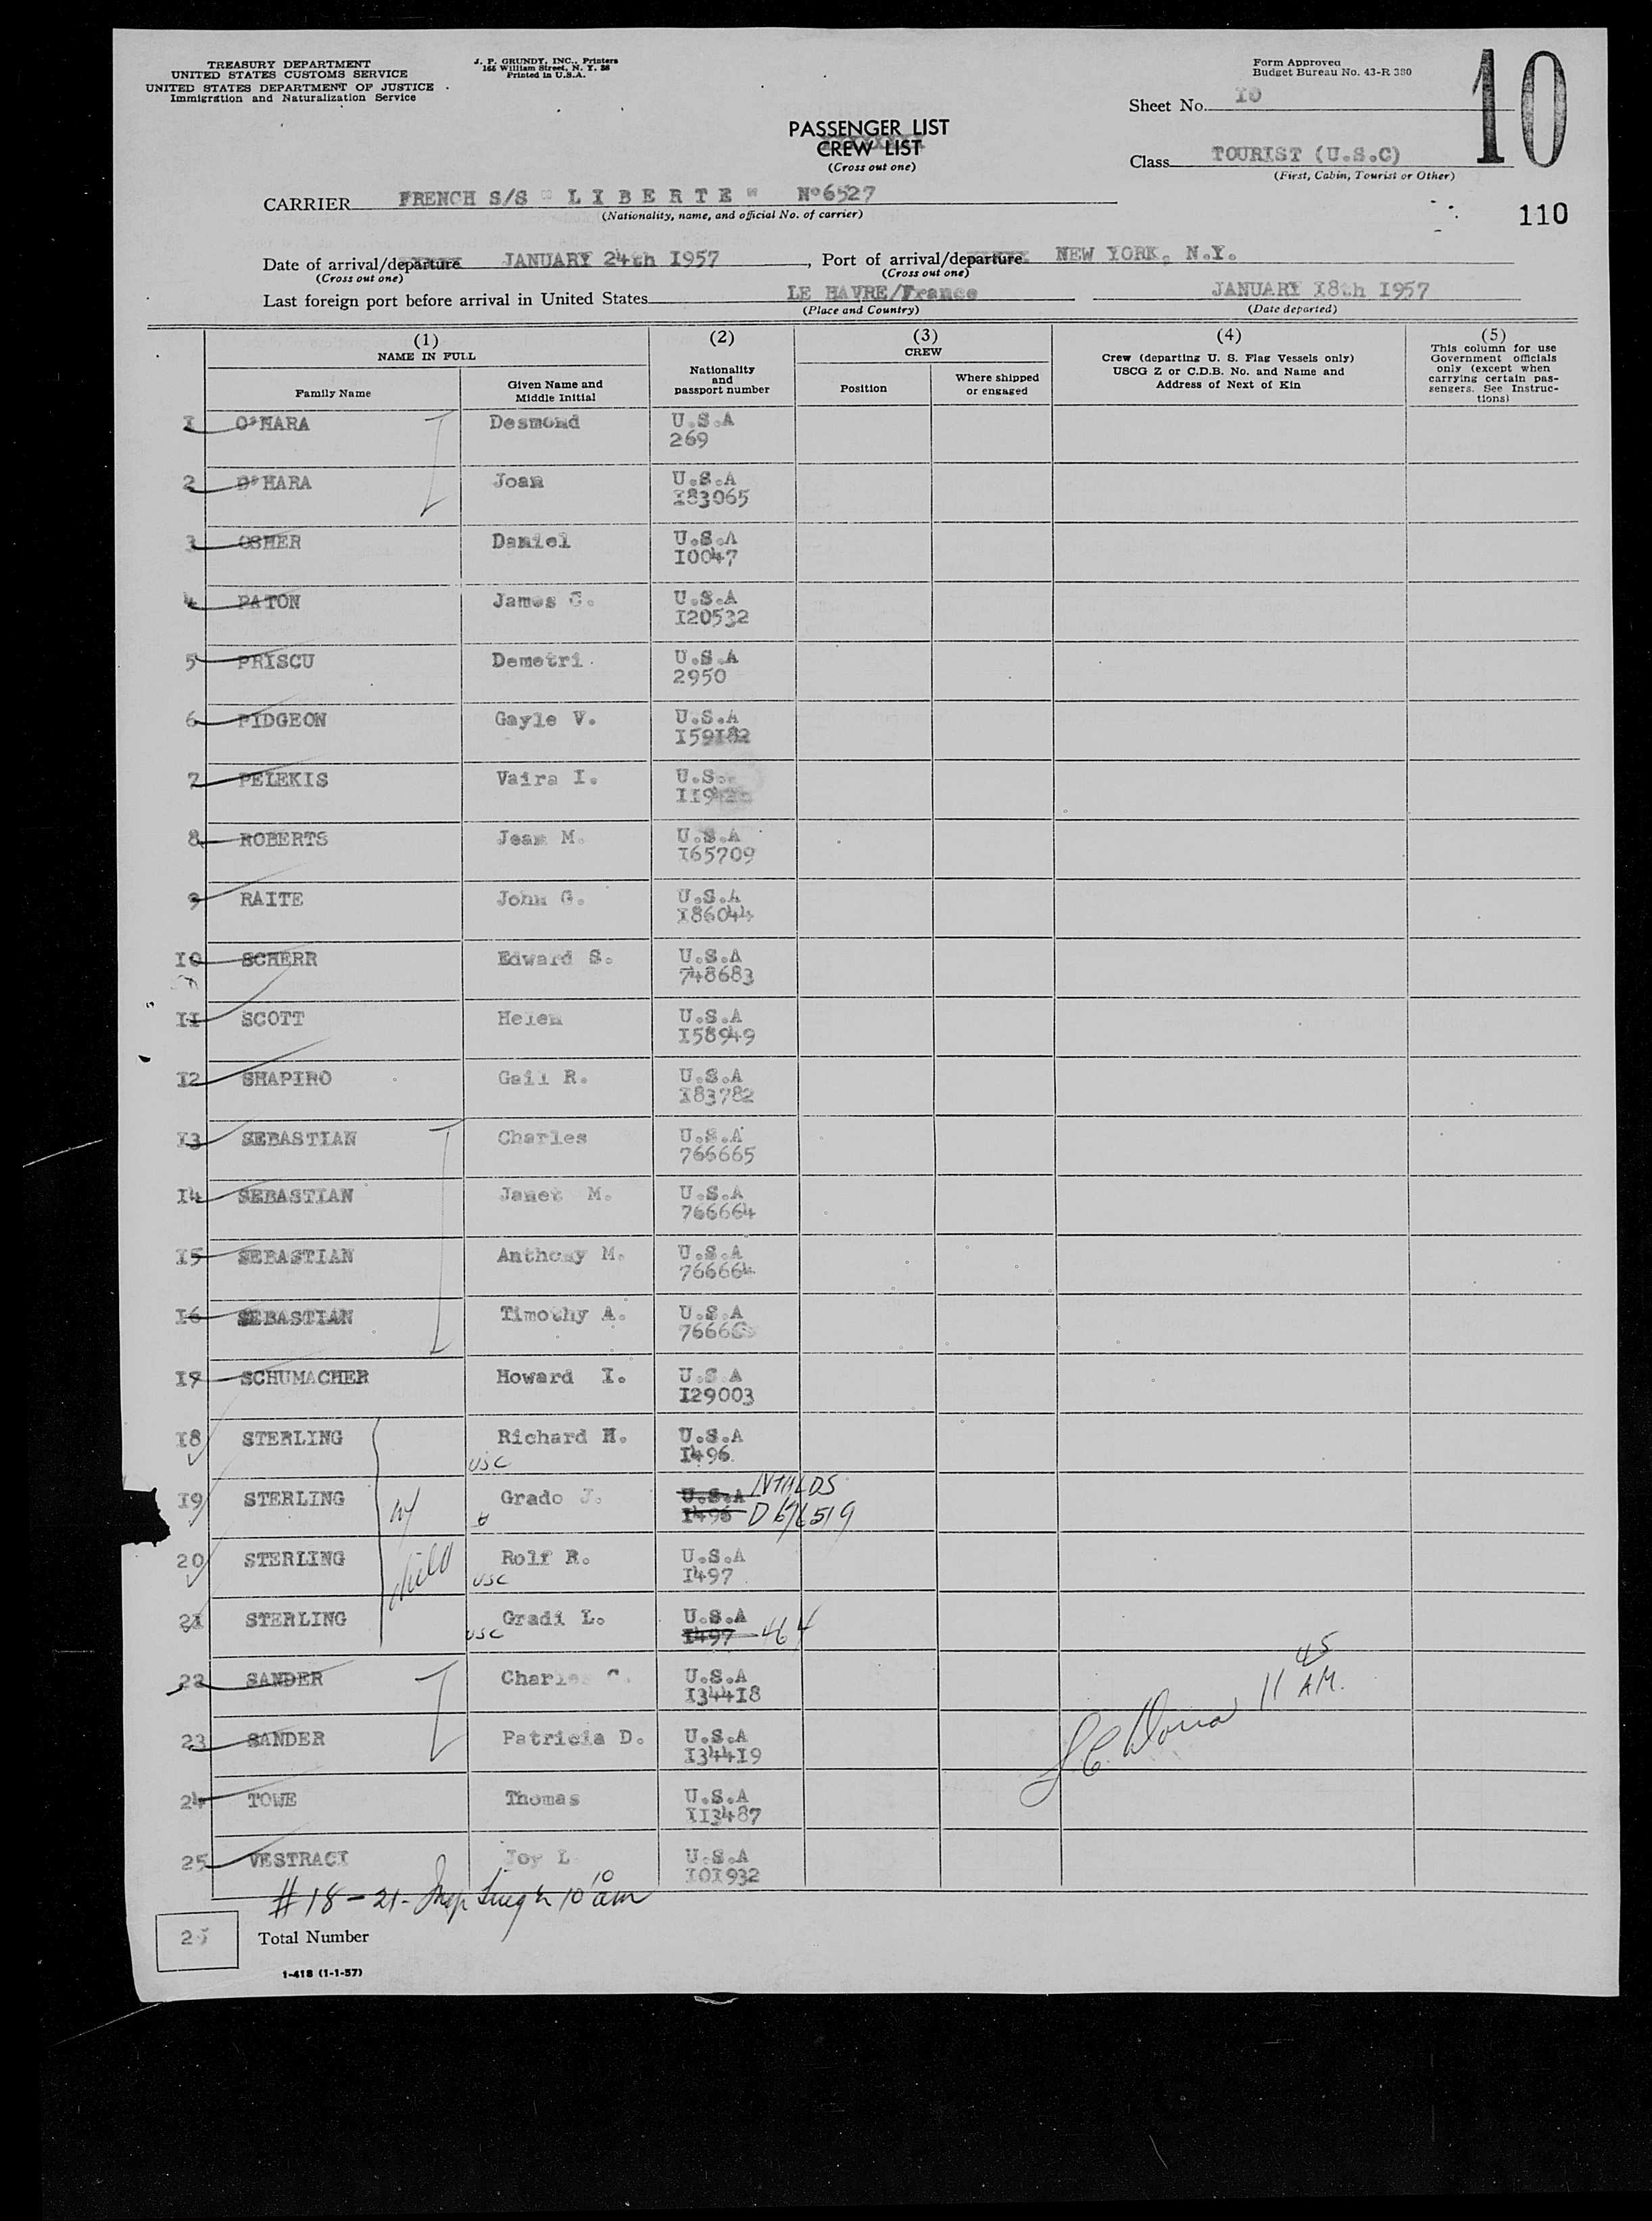 TREASURY DEPARTMENT
UNITED STATES CUSTOMS SERVICE
UNITED STATES DEPARTMENT OF JUSTICE
Immigration and Naturalization Service
J. P. GRUNDY, INC., Printers
165 William Street, N. Y. 38
Printed in U.S.A.
Form Approved
Budget Bureau No. 43-R 380
10
Sheet No. I0
PASSENGER LIST
CREW LIST
(Cross out one)
Class TOURIST (U.S.C)
(First, Cabin, Tourist or Other)
CARRIER FRENCH S/S " L I B E R T E " N°6527
(Nationality, name, and official No. of carrier)
110
Date of arrival/departure JANUARY 24th I957, Port of arrival/departure NEW YORK, N.Y.
(Cross out one) (Cross out one)
Last foreign port before arrival in United States LE HAVRE/France JANUARY I8th I957
(Place and Country) (Date departed)
(1) (2) (3) (4) (5)
NAME IN FULL
Family Name
Given Name and
Middle Initial
Nationality
and
passport number
CREW
Position
Where shipped
or engaged
Crew (departing U. S. Flag Vessels only)
USCG Z or C.D.B. No. and Name and
Address of Next of Kin
This column for use
Government officials
only (except when
carrying certain pas-
sengers. See Instruc-
tions)
I O'HARA Desmond U.S.A
269
2 O'HARA Joan U.S.A
I83065
3 OSHER Daniel U.S.A
I0047
4 PATON James U.S.A
I20532
5 PRISCU Demetri U.S.A
2950
6 PIDGEON Gayle V. U.S.A
I59I82
7 PELEKIS Vaira I. U.S.
8 ROBERTS Jean M. U.S.A
I65709
9 RAITE John G. U.S.A
I86044
I0 SCHERR Edward S. U.S.A
748683
II SCOTT Helen U.S.A
I58949
I2 SHAPIRO Gail R. U.S.A
I83782
I3 SEBASTIAN Charles U.S.A
766665
I4 SEBASTIAN Janet M. U.S.A
766664
I5 SEBASTIAN Anthony M. U.S.A
766664
I6 SEBASTIAN Timothy A. U.S.A
I7 SCHUMACHER Howard I. U.S.A
I29003
I8 STERLING Richard H. U.S.A
USC I496
I9 STERLING Grado J. U.S.A
I496
20 STERLING Rolf R. U.S.A
USC I497
child
2I STERLING Gradi L. U.S.A
USC I497 464
22 SANDER Charles C. U.S.A
I344I8
45
11 AM.
23 SANDER Patricia D. U.S.A
I344I9
24 TOWE Thomas U.S.A
II3487
25 VESTRACI Joy L U.S.A
I0I932
# 18 - 21 - 10 10 am
25 Total Number
1-418 (1-1-57)